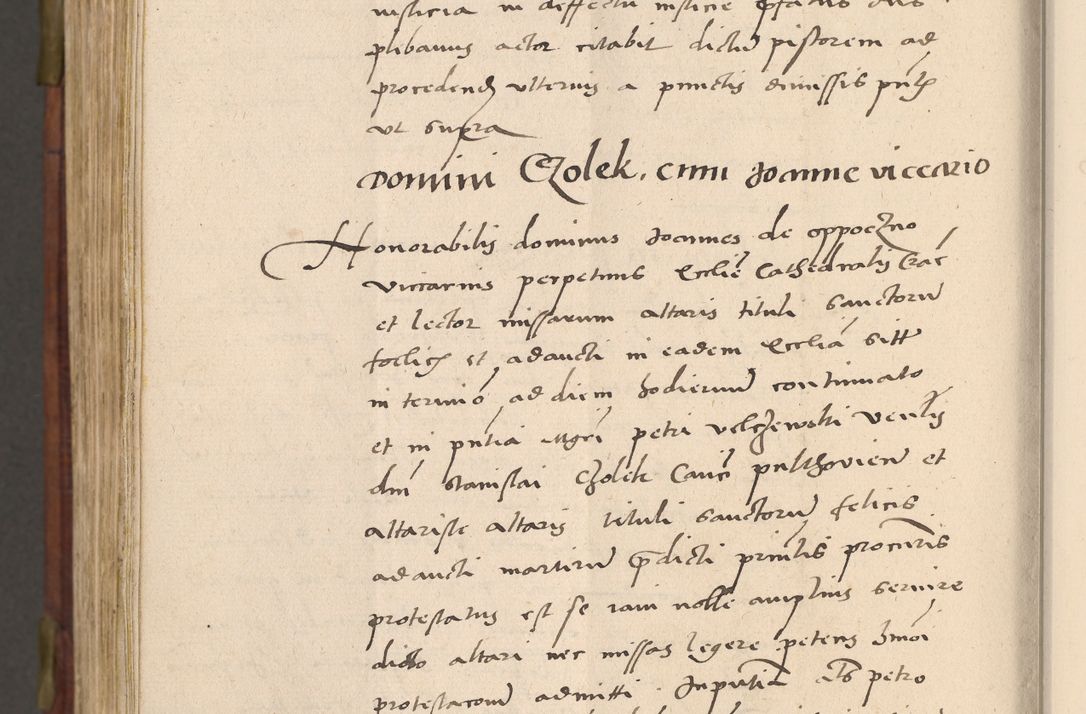 plebanus actor citabit dictum pistorem ad
procedendum ulterius a punctis dimissis pñtj
ut supra
Domini Czolek, cum Joanne viccario
Honorabilis dominus Joannes de oppoczno
viccarius perpetuus Ecclie Cathedralis Crac
et lector missarum altaris tituli sanctoru
foelicis et adaucti in eadem Ecclia sitt
in termino ad diem hodiernu continuato
et in pntia Mgri petri velczewski venlis
dni Stanislai Czolek Canci pultovien et
altariste altaris tituli sanctoru felicis
adaucti martiru pdicti prinlis procuris
protestatus est se iam nolle amplius servire
dicto altari nec missas legere petens hmoi
protestacione admitti. In pntia dts petro